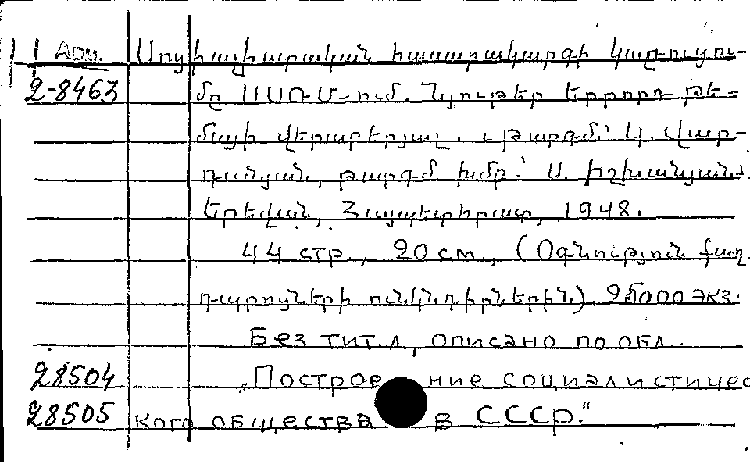 Арм. Սոցիալիստական հասարակարգի կառուցու-
2-8463 մը ՍՍՌՄ-ում. Նյութեր երրորդ թե-
մայի վերաբերյալ. Թարգմ.՝ Կ. Վար-
դանյան, թարգմ. խմբ.՝ Ս. Իշխանյան.
Երեվան, Հայպետհրատ, 1948.
44 стр., 20 см., (Օգնություն քաղ.
դպրոցների ունկնդիրներին.) 25000 экз.
Без тит. л, описано по обл.
28504 „Построение социалистичес
28505 кого общества в СССР."